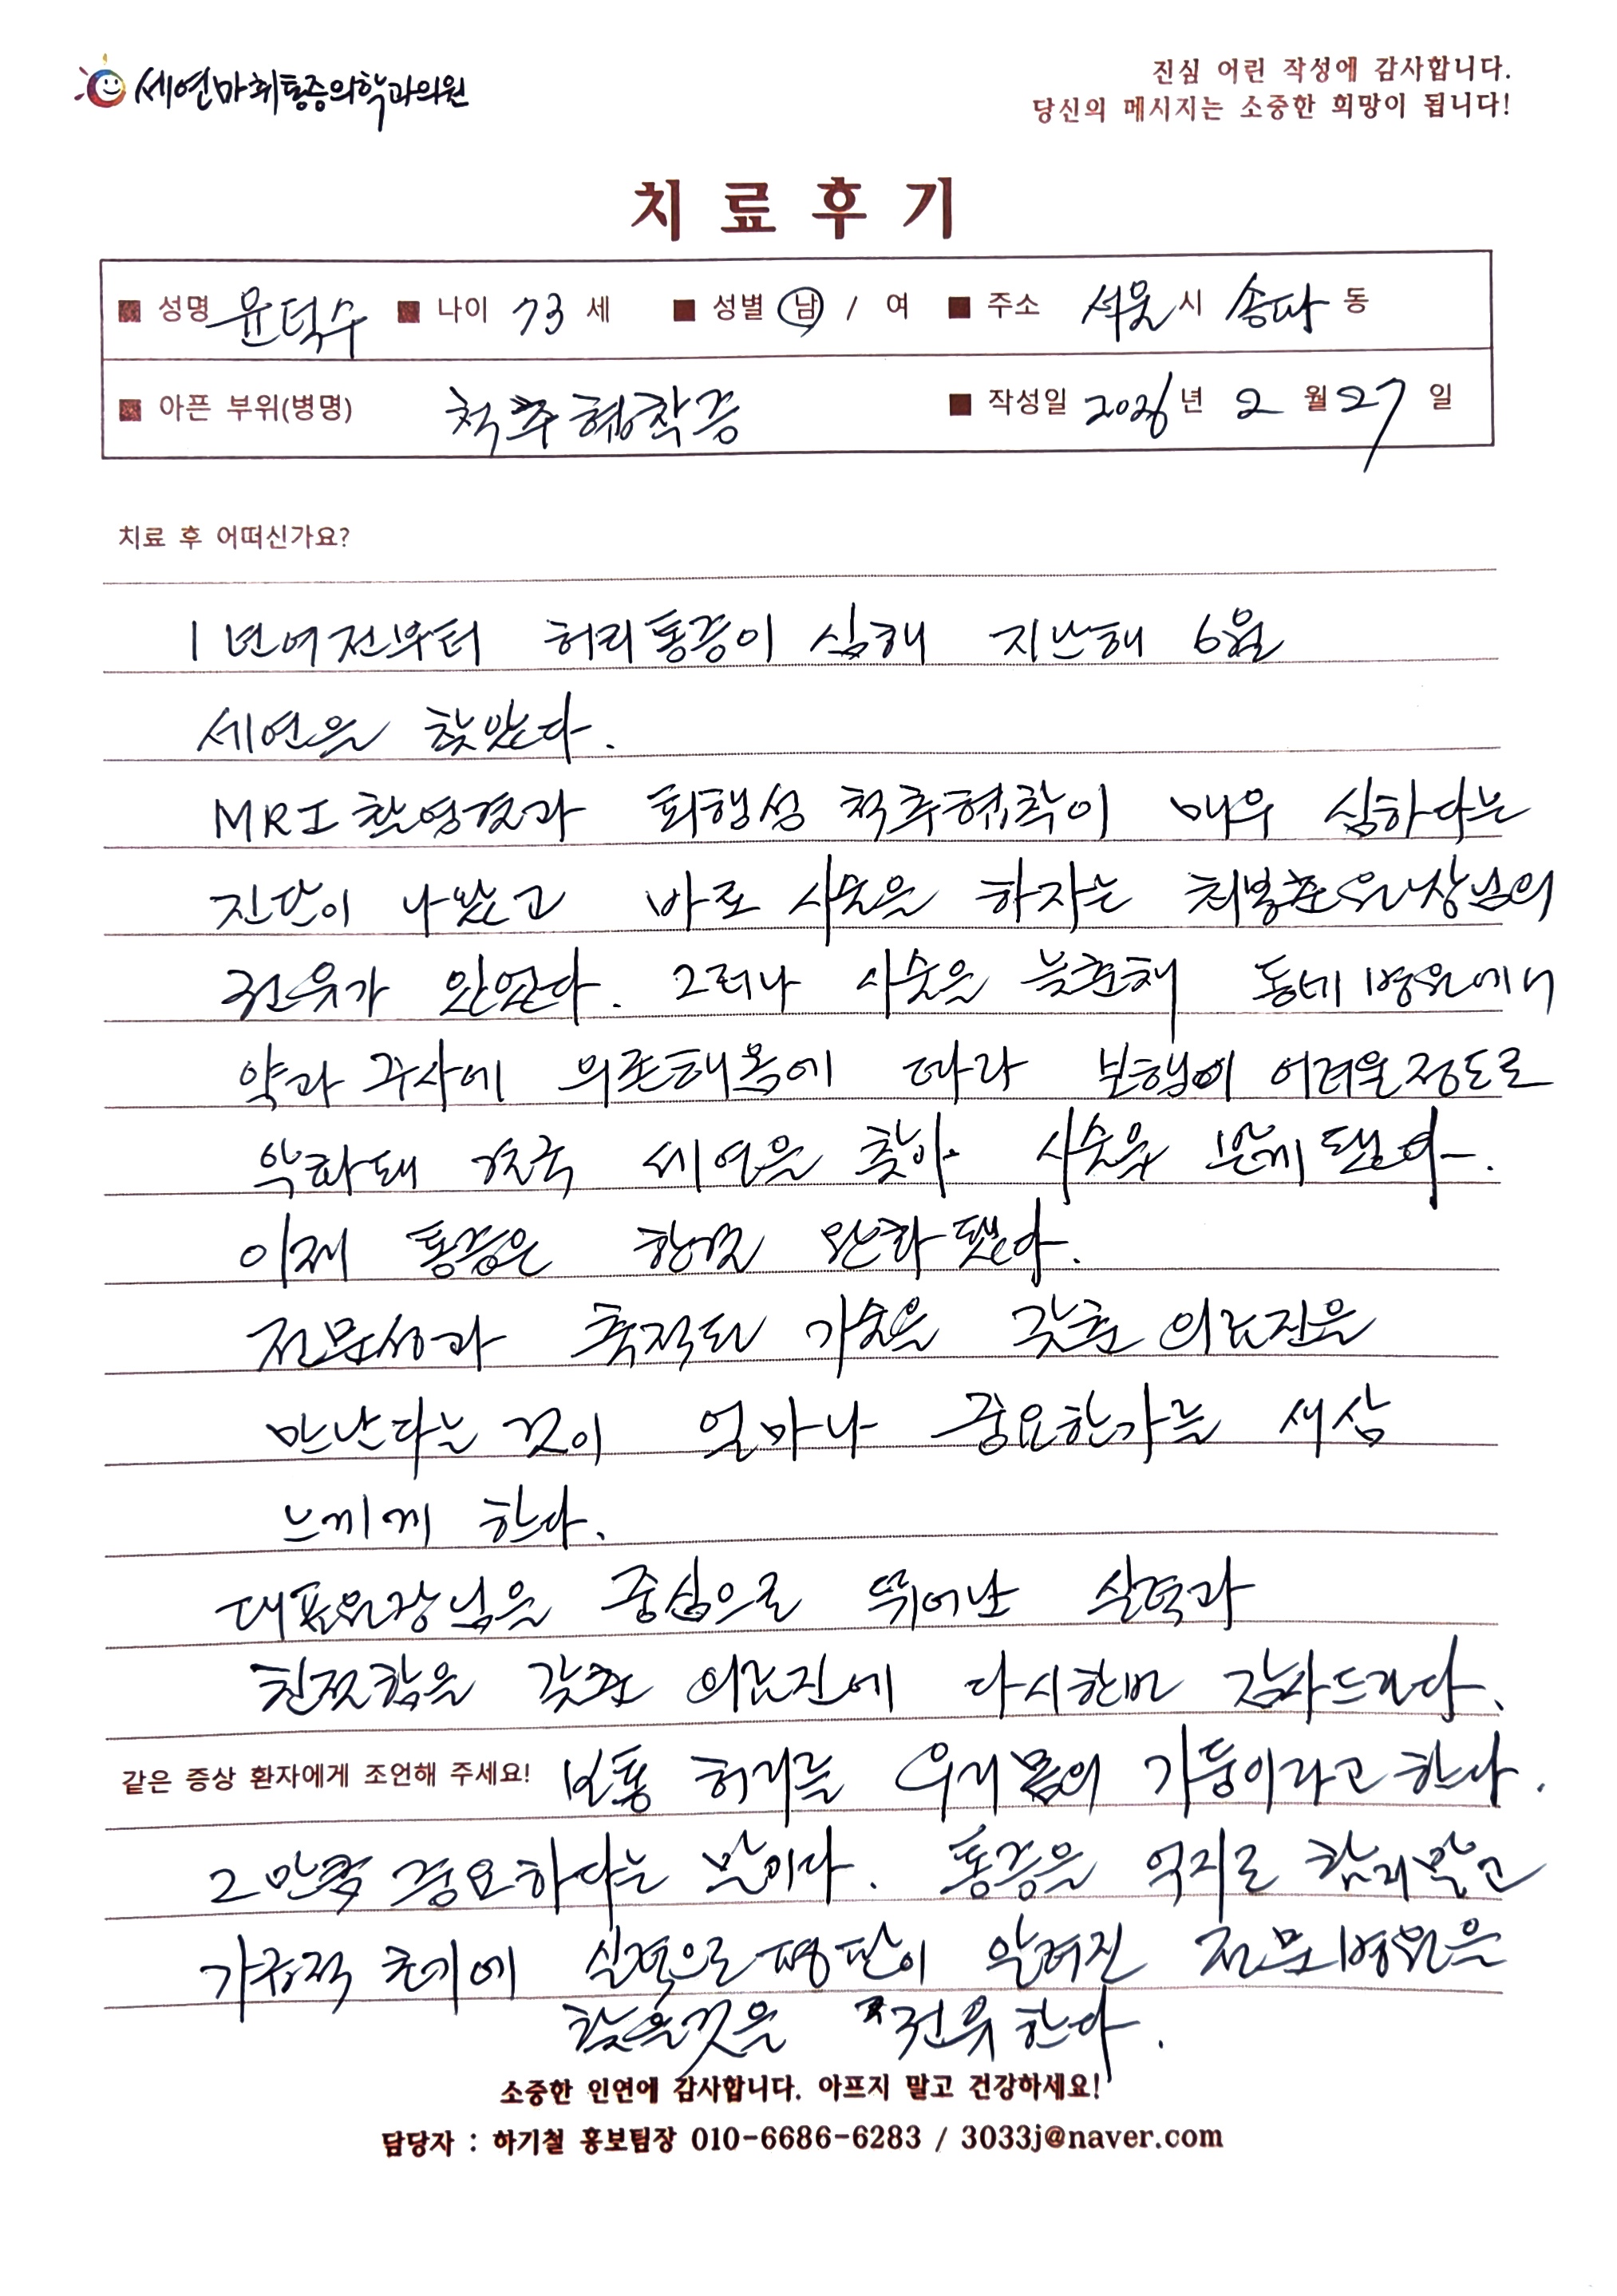 세연마취통증의학과의원
진심 어린 작성에 감사합니다.
당신의 메시지는 소중한 희망이 됩니다!
치료후기
■ 성명 윤덕수 ■ 나이 73 세 ■ 성별 남 / 여 ■ 주소 서울 시 송파 동
■ 아픈 부위(병명) 척추협착증 ■ 작성일 2026 년 2 월 27 일
치료 후 어떠신가요?
1년여전부터 허리통증이 심해 지난해 6월
세연을 찾았다.
MRI 촬영결과 퇴행성 척추협착이 매우 심하다는
진단이 나왔고 바로 시술을 하자는 최봉춘원장님의
권유가 있었다. 그러나 시술을 늦춘채 동네병원에서
약과 주사에 의존해옴에 따라 보행이 어려울정도로
악화돼 결국 세연을 찾아 시술을 받게 됐다.
이제 통증은 한결 완화됐다.
전문성과 축적된 기술을 갖춘 의료진을
만난다는 것이 얼마나 중요한가를 새삼
느끼게 한다.
대표원장님을 중심으로 뛰어난 실력과
친절함을 갖춘 의료진에 다시한번 감사드린다.
같은 증상 환자에게 조언해 주세요! 보통 허리를 우리몸의 기둥이라고 한다.
그만큼 중요하다는 말이다. 통증을 억지로 참지말고
가급적 초기에 실력으로 평판이 알려진 전문병원을
찾을것을 권유한다.
소중한 인연에 감사합니다. 아프지 말고 건강하세요!
담당자 : 하기철 홍보팀장 010-6686-6283 / 3033j@naver.com